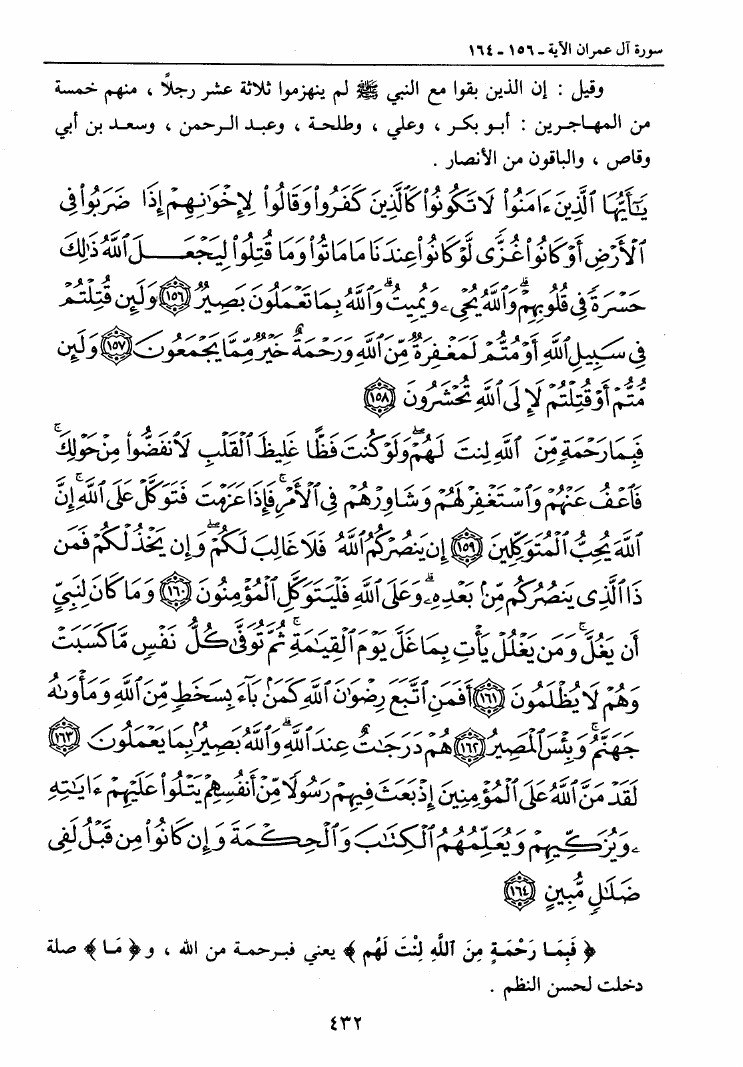 سورة آل عمران الآية ـ ١٥٦ ـ ١٦٤
وقيل : إن الذين بقوا مع النبي ﷺ لم ينهزموا ثلاثة عشر رجلاً ، منهم خمسة
من المهاجرين : أبو بكر ، وعلي ، وطلحة ، وعبد الرحمن ، وسعد بن أبي
وقاص ، والباقون من الأنصار .
يَٰٓأَيُّهَا ٱلَّذِينَ ءَامَنُوا۟ لَا تَكُونُوا۟ كَٱلَّذِينَ كَفَرُوا۟ وَقَالُوا۟ لِإِخْوَٰنِهِمْ إِذَا ضَرَبُوا۟ فِى
ٱلْأَرْضِ أَوْ كَانُوا۟ غُزًّى لَّوْ كَانُوا۟ عِندَنَا مَا مَاتُوا۟ وَمَا قُتِلُوا۟ لِيَجْعَلَ ٱللَّهُ ذَٰلِكَ
حَسْرَةً فِى قُلُوبِهِمْ ۗ وَٱللَّهُ يُحْىِۦ وَيُمِيتُ ۗ وَٱللَّهُ بِمَا تَعْمَلُونَ بَصِيرٌ ١٥٦ وَلَئِن قُتِلْتُمْ
فِى سَبِيلِ ٱللَّهِ أَوْ مُتُّمْ لَمَغْفِرَةٌ مِّنَ ٱللَّهِ وَرَحْمَةٌ خَيْرٌ مِّمَّا يَجْمَعُونَ ١٥٧ وَلَئِن
مُّتُّمْ أَوْ قُتِلْتُمْ لَإِلَى ٱللَّهِ تُحْشَرُونَ ١٥٨
فَبِمَا رَحْمَةٍ مِّنَ ٱللَّهِ لِنتَ لَهُمْ ۖ وَلَوْ كُنتَ فَظًّا غَلِيظَ ٱلْقَلْبِ لَٱنفَضُّوا۟ مِنْ حَوْلِكَ ۖ
فَٱعْفُ عَنْهُمْ وَٱسْتَغْفِرْ لَهُمْ وَشَاوِرْهُمْ فِى ٱلْأَمْرِ ۖ فَإِذَا عَزَمْتَ فَتَوَكَّلْ عَلَى ٱللَّهِ ۚ إِنَّ
ٱللَّهَ يُحِبُّ ٱلْمُتَوَكِّلِينَ ١٥٩ إِن يَنصُرْكُمُ ٱللَّهُ فَلَا غَالِبَ لَكُمْ ۖ وَإِن يَخْذُلْكُمْ فَمَن
ذَا ٱلَّذِى يَنصُرُكُم مِّنۢ بَعْدِهِۦ ۗ وَعَلَى ٱللَّهِ فَلْيَتَوَكَّلِ ٱلْمُؤْمِنُونَ ١٦٠ وَمَا كَانَ لِنَبِىٍّ
أَن يَغُلَّ ۚ وَمَن يَغْلُلْ يَأْتِ بِمَا غَلَّ يَوْمَ ٱلْقِيَٰمَةِ ۚ ثُمَّ تُوَفَّىٰ كُلُّ نَفْسٍ مَّا كَسَبَتْ
وَهُمْ لَا يُظْلَمُونَ ١٦١ أَفَمَنِ ٱتَّبَعَ رِضْوَٰنَ ٱللَّهِ كَمَنۢ بَآءَ بِسَخَطٍ مِّنَ ٱللَّهِ وَمَأْوَىٰهُ
جَهَنَّمُ ۚ وَبِئْسَ ٱلْمَصِيرُ ١٦٢ هُمْ دَرَجَٰتٌ عِندَ ٱللَّهِ ۗ وَٱللَّهُ بَصِيرٌۢ بِمَا يَعْمَلُونَ ١٦٣
لَقَدْ مَنَّ ٱللَّهُ عَلَى ٱلْمُؤْمِنِينَ إِذْ بَعَثَ فِيهِمْ رَسُولًا مِّنْ أَنفُسِهِمْ يَتْلُوا۟ عَلَيْهِمْ ءَايَٰتِهِ
ۦ وَيُزَكِّيهِمْ وَيُعَلِّمُهُمُ ٱلْكِتَٰبَ وَٱلْحِكْمَةَ وَإِن كَانُوا۟ مِن قَبْلُ لَفِى
ضَلَٰلٍ مُّبِينٍ ١٦٤
﴿ فَبِمَا رَحْمَةٍ مِنَ ٱللَّهِ لِنْتَ لَهُم ﴾ يعني فبرحمة من الله ، و ﴿ مَا ﴾ صلة
دخلت لحسن النظم .
٤٣٢